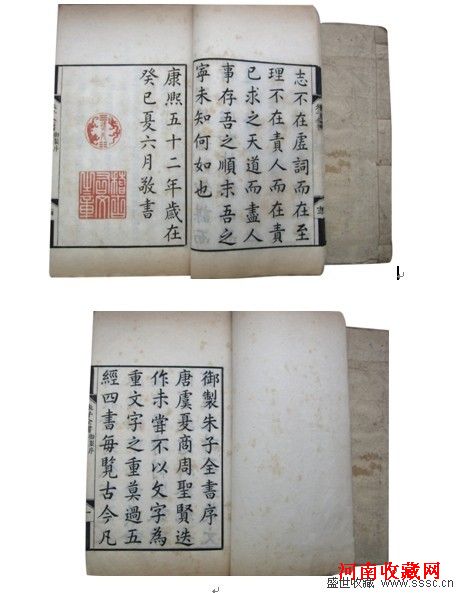 志不在虛詞而在至
理不在責人而在責
已求之天道而盡人
事存吾之順末吾之
寧未知何如也
康熙五十二年歲在
癸巳夏六月敬書
稽古右文之章
御製朱子全書序
唐虞夏商周聖賢迭
作未嘗不以文字為
重文字之重莫過五
經四書每覽古今凡
朱子全書 御製序
一
河南收藏网
盛世收藏 www.sssc.cn